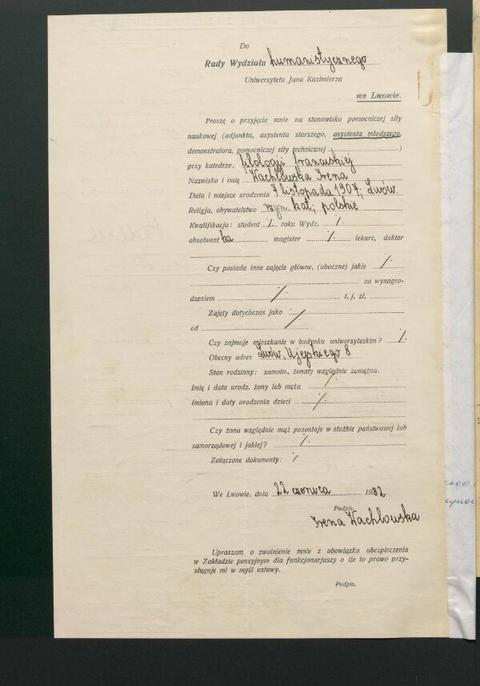 Do
Rady Wydziału humanistycznego
Uniwersytetu Jana Kazimierza
we Lwowie.
Proszę o przyjęcie mnie na stanowisko pomocniczej siły
naukowej (adjunkta, asystenta starszego, asystenta młodszego,
demonstratora, pomocniczej siły technicznej )
przy katedrze: filologji francuskiej
Nazwisko i imię Wachlowska Irena
Data i miejsce urodzenia 7 listopada 1907, Lwów
Religja, obywatelstwo rzym. kat., polskie
Kwalifikacja: student ⁒ roku Wydz. ⁒
absolwentka magister ⁒ lekarz, doktor
Czy posiada inne zajęcie główne, (uboczne) jakie ⁒
za wynagro-
dzeniem ⁒ t. j. zł.
Zajęty dotychczas jako
od ⁒
Czy zajmuje mieszkanie w budynku uniwersyteckim? ⁒
Obecny adres Lwów, Ujejskiego 8
Stan rodzinny: samotn., żonaty względnie zamężna.
Imię i data urodz. żony lub męża ⁒
Imiona i daty urodzenia dzieci ⁒
Czy żona względnie mąż pozostaje w służbie państwowej lub
samorządowej i jakiej? ⁒
Załączone dokumenty: ⁒
We Lwowie, dnia 22 czerwca 1932
Podpis
Irena Wachlowska
Upraszam o zwolnienie mnie z obowiązku ubezpieczenia
w Zakładzie pensyjnym dla funkcjonarjuszy o ile to prawo przy-
sługuje mi w myśl ustawy.
Podpis.